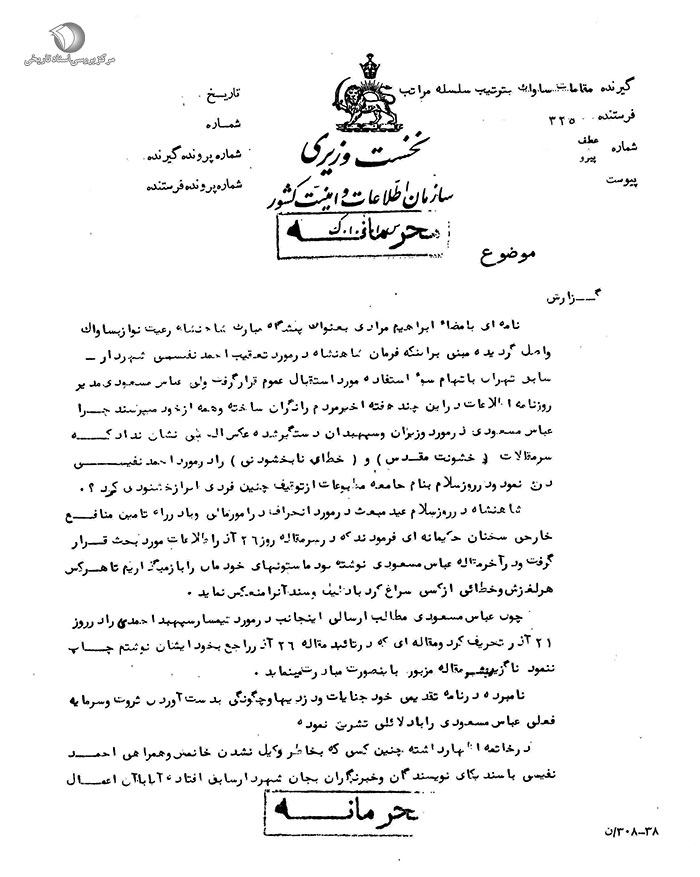 مرکز بررسی اسناد تاریخی
گیرنده مقامات ساواك بترتیب سلسله مراتب
فرستنده ۳۲۵
شماره عطف
پیرو
پیوست
تاریخ
شماره
شماره پرونده گیرنده
شماره پرونده فرستنده
نخست وزیری
سازمان اطلاعات و امنیت کشور
محرمانه
موضوع
گزارش
نامه ای بامضاء ابراهیم مرادی بعنوان پیشگاه مبارك شاهنشاه رعیت نواز بساواك
واصل گردیده مبنی براینکه فرمان شاهنشاه درمورد تعقیب احمد نفیسی شهردار –
سابق تهران باتهام سوء استفاده مورد استقبال عموم قرارگرفت ولی عباس مسعودی مدیر
روزنامه اطلاعات دراین چند هفته اخیر مردم رانگران ساخته وهمه ازخود میپرسند چرا
عباس مسعودی درمورد وزیران وسپهبدان دستگیرشده عکس العملی نشان نداد که
سرمقالات ( خشونت مقدس ) و ( خطای نابخشودنی ) را درمورد احمد نفیسی
درج نمود ودرروزسلام بنام جامعه مطبوعات ازتوقیف چنین فردی ابراز خشنودی کرد ؟ .
شاهنشاه درروزسلام عید مبعث درمورد انحراف درامورمالی ویا درراه تامین منافع
خارجی سخنان حکیمانه ای فرمودند که درسرمقاله روز ۲۶ آذر اطلاعات مورد بحث قرار
گرفت ودرآخرمقاله عباس مسعودی نوشته بود ماستونهای خود مان را بازمیگذاریم تا هرکس
هرلغزش وخطائی ازکسی سراغ کرد بادلیل وسند آنرا منعکس نماید .
چون عباس مسعودی مطالب ارسالی اینجانب درمورد تیمسارسپهبد احمدی را درروز
۲۱ آذر تحریف کرد ومقاله ای که درتائید مقاله ۲۶ آذر راجع بخود ایشان نوشتم چاپ
ننمود ناگزیر مقاله مزبور باینصورت مبادرت مینماید .
نامبرده درنامه تقدیمی خود جنایات ودزدیها وچگونگی بدست آوردن ثروت وسرمایه
فعلی عباس مسعودی را با دلائلی تشریح نموده
درخاتمه اظهارداشته چنین کسی که بخاطر وکیل نشدن خانمش وهمراهی احمد
نفیسی باسندیکای نویسندگان وخبرنگاران بجان شهردارسابق افتاده آیا با آن اعمال
محرمانه
۳۸–۳۰۸/ن